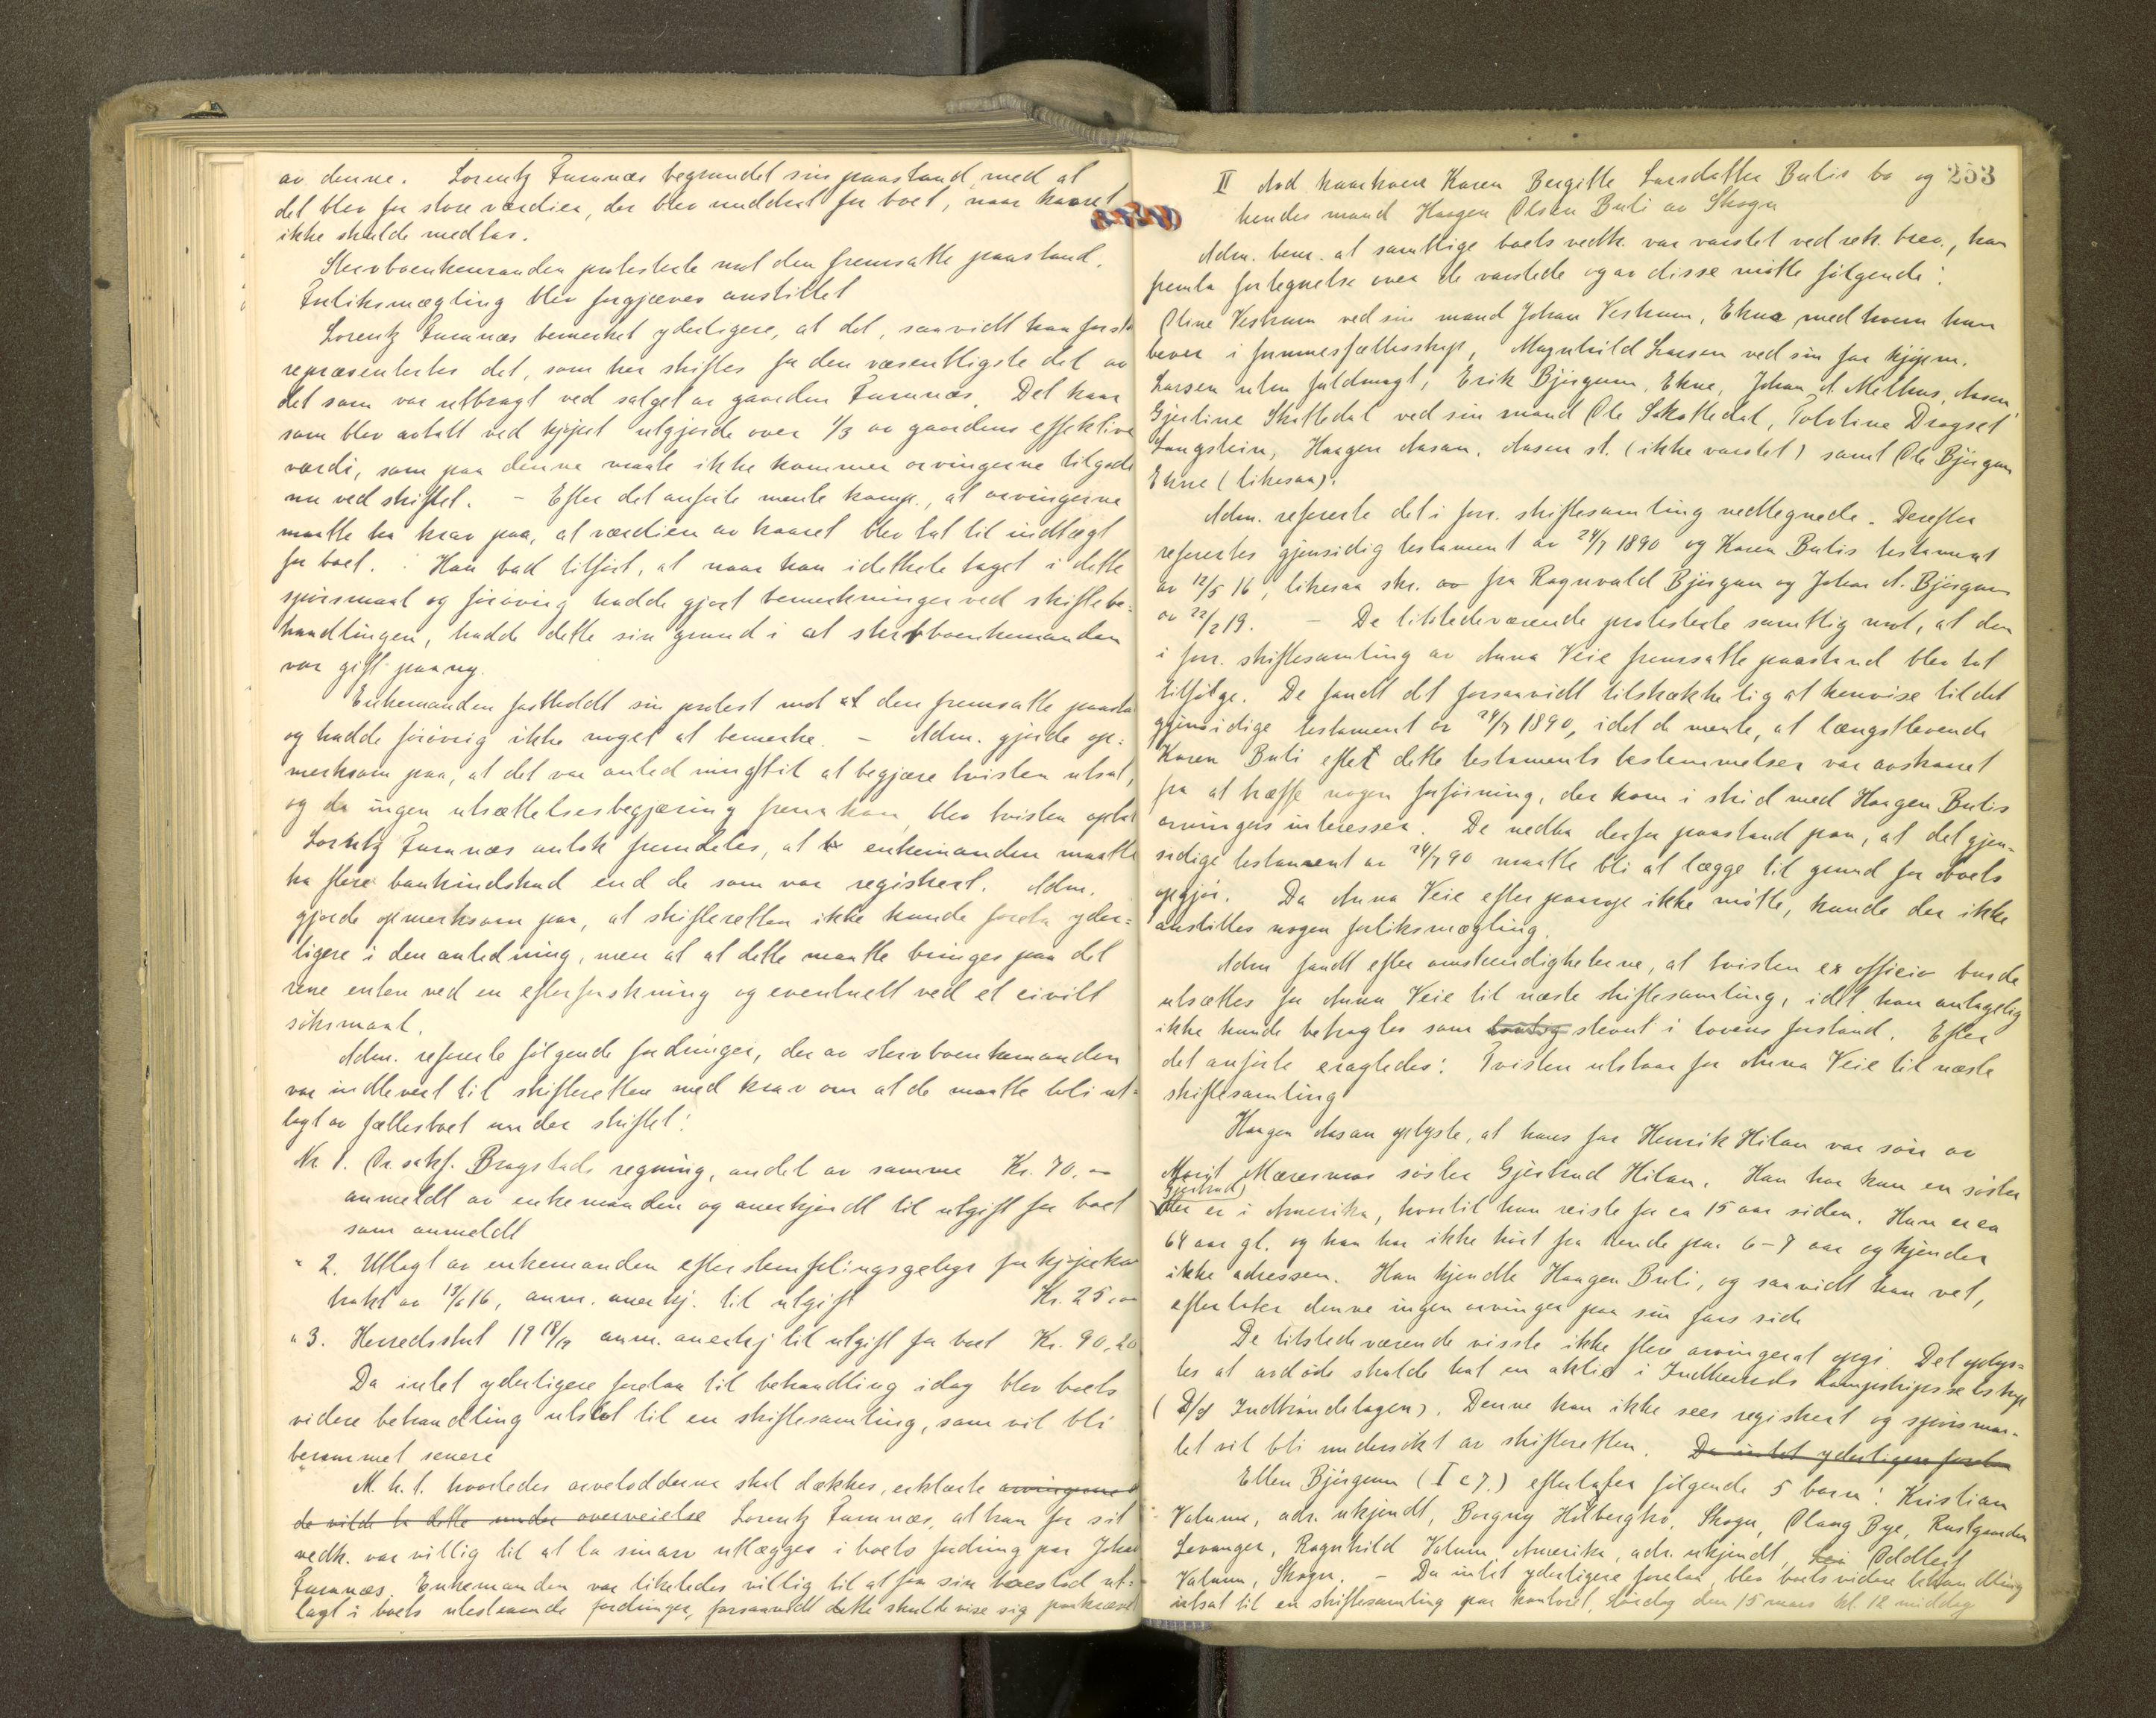 av denne. Lorentz Furunæs begrundet sin paastand med at
det blev for store værdier, der blev unddrat for boet, naar kaaret
ikke skulde medtas.
Stervboenkemanden protesterte mot den fremsatte paastand.
Forliksmægling blev forgjæves anstillet
Lorentz Furunæs bemerket yderligere, at det, saavidt han forsto
repræsentertes det, som her skiftes for den væsentligste del av
det som var utbragt ved salget av gaarden Furunæs. Det kaar
som blev avtalt ved kjöpet utgjorde over 1/3 av gaardens effektive
værdi, som paa denne maate ikke kommer arvingerne tilgode
nu ved skiftet. – Efter det anförte mente komp., at arvingerne
maatte ha krav paa, at værdien av kaaret blev tat til indtægt
for boet. Han bad tilfört, at naar han idethele taget i dette
spörsmaal og forövrig hadde gjort bemerkninger ved skiftebe=
handlingen, hadde dette sin grund i at stervboenkemanden
var gift paany.
Enkemanden fastholdt sin protest mot den fremsatte paasta
og hadde forövrig ikke noget at bemerke. – Adm. gjorde op=
merksom paa, at det var anledning til at begjære tvisten utsat,
og da ingen utsættelsesbegjæring fremkom, blev tvisten optat
Lorentz Furunæs antok fremdeles, at enkemanden maatte
ha flere bankindskud end de som var registrert. Adm.
gjorde opmerksom paa, at skifteretten ikke kunde foreta yder=
ligere i den anledning, men at at dette maatte bringes paa det
rene enten ved en efterforskning og eventuelt ved et civilt
söksmaal.
Adm. refererte følgende fordringer, der av stervboenkemanden
var indlevert til skifteretten med krav om at de maatte bli ut=
lagt av fællesboet under skiftet:
Nr. 1. Or.sakf. Bragstads regning, andel av samme Kr. 70.00
anmeldt av enkemanden og anerkjendt til utgift for boet
som anmeldt
" 2. Utlagt av enkemanden efterstemplingsgebyr for kjöpekon
trakt av 13/6 16, anm. anerkj. til utgift Kr. 25.00
" 3. Herredsskat 19 18/19 anm. anerkj til utgift for boet Kr. 90.20
Da intet yderligere forelaa til behandling idag blev boets
videre behandling utsat til en skiftesamling, som vil bli
berammet senere
M. h. t. hvorledes arvelodderne skal dækkes, erklærte arvingerne
de vilde ta dette under overveielse Lorentz Furunæs, at han for sit
vedk. var villig til at ta sin arv utlægges i boets fordring paa Johan
Furunæs. Enkemanden var likeledes villig til at faa sin boeslod ut=
lagt i boets utestaaende fordringer, forsaavidt dette skulde vise sig paakrævet
253
II Avd kaarkone Karen Bergitte Larsdatter Bulis bo og
hendes mand Haagen Olsen Buli av Skogn
Adm. bem. at samtlige boets vedk. var varslet ved rek. brev, han
fremla fortegnelse over de varslede og av disse mötte fölgende:
Oline Vestrum ved sin mand Johan Vestrum, Ekne med hvem hun
lever i formuesfællesskap, Magnhild Larsen ved sin far kjöpm.
Larsen uten fuldmagt, Erik Björgum, Ekne, Johan A. Melhus, Aasen,
Gjertine Skatledal ved sin mand Ole Skatledal, Tolotine Dragset
Langstein, Haagen Aasan, Aasen st. (ikke varslet) samt Ole Björgum
Ekne (likesaa).
Adm. refererte det i forr. skiftesamling vedtegnede. Derefter
refertes gjensidig testament av 24/7 1890 og Karen Bulis testament
av 12/5 16, likesaa skr. av fra Ragnvald Björgum og Johan A. Björgum
av 22/2 19. – De tilstedeværende protesterte samtlig mot, at den
i forr. skiftesamling av Anna Veie fremsatte paastand blev tat
tilfölge. De fandt det forsaavidt tilstrækkelig at henvise til det
gjensidige testament av 24/7 1890, idet de mente, at længstlevende
Karen Buli efter dette testaments bestemmelser var avskaaret
fra at træffe nogen forföining, der kom i strid med Haagen Bulis
arvingers interesser. De nedla derfor paastand paa, at det gjen-
sidige testament av 24/7 90 maatte bli at lægge til grund for boets
opgjör. Da Anna Veie efter paarop ikke mötte, kunde der ikke
anstilles nogen forliksmægling.
Adm fandt efter omstændigheterne, at tvisten ex officio burde
utsættes for Anna Veie til næste skiftesamling, idet hun antagelig
ikke kunde betragtes som stevnt i lovens forstand. Efter
det anförte eragtedes: Tvisten utstaar for Anna Veie til næste
skiftesamling
Haagen Aasan oplyste, at hans far Henrik Hilan var sön av
Marit Mæresmos söster Gjertrud Hilan. Han har kun en söster
Gjertrud)
der er i Amerika, hvortil hun reiste for ca 15 aar siden. Hun er ca
64 aar gl. og han har ikke hört fra hende paa 6–7 aar og kjender
ikke adressen. Han kjendte Haagen Buli, og saavidt han vet,
efterlater denne ingen arvinger paa sin fars side
De tilstedeværende visste ikke flere arvinger at opgi. Det oplys=
tes at avdöde skulde hat en aktie i Indherreds dampskipsselskap
(D/S Indtröndelagen). Denne kan ikke sees registrert og spörsmaa-
let vil bli undersökt av skifteretten. Da intet yderligere forelaa
Ellen Björgum (I c 7.) efterlater fölgende 5 barn: Kristian
Valum, adr. ukjendt, Borgny Holbergmo, Skogn, Olaug Bye, Rustgaarden
Levanger, Ragnhild Valum Amerika, adr. ukjendt, Oddleif
Valum, Skogn. – Da intet yderligere forelaa, blev boets videre behandling
utsat til en skiftesamling paa kontoret, lördag den 15 mars kl. 12 middag